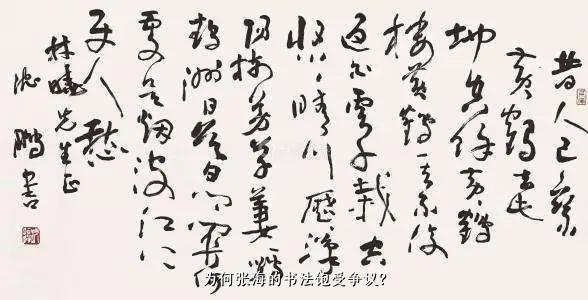 昔人已乘
黄鹤去此
地空余黄鹤
楼黄鹤一去不復
返白雲千載空
悠悠晴川歷歷漢
陽樹芳草萋萋鸚
鵡洲日暮鄉關何
處是烟波江上
使人愁
先生正
沈鹏书
为何张海的书法饱受争议?